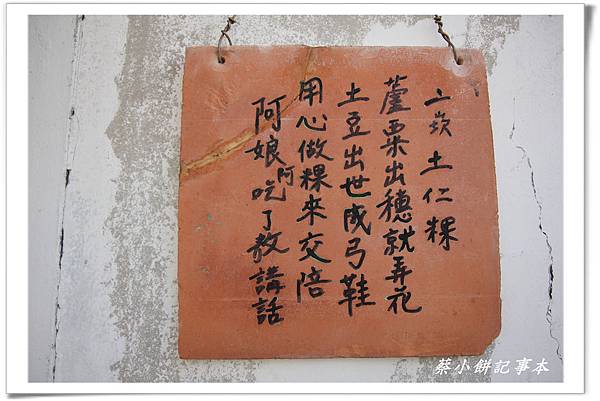 二崁土仁粿
蘆粟出穗就弄花
土豆出世成弓鞋
用心做粿來交陪
阿娘阿吃了敎講話
蔡小餅記事本